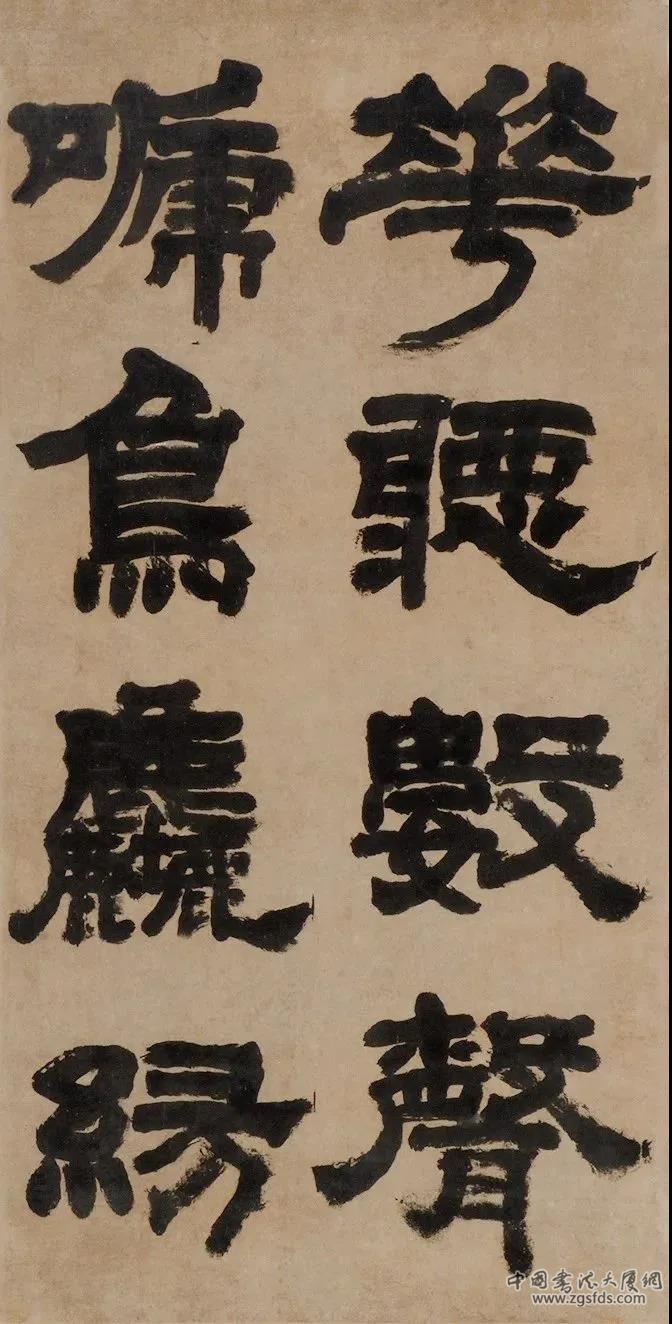 華聽數聲
嗁鳥麤緣
中国书法大厦網
www.zgsfds.com